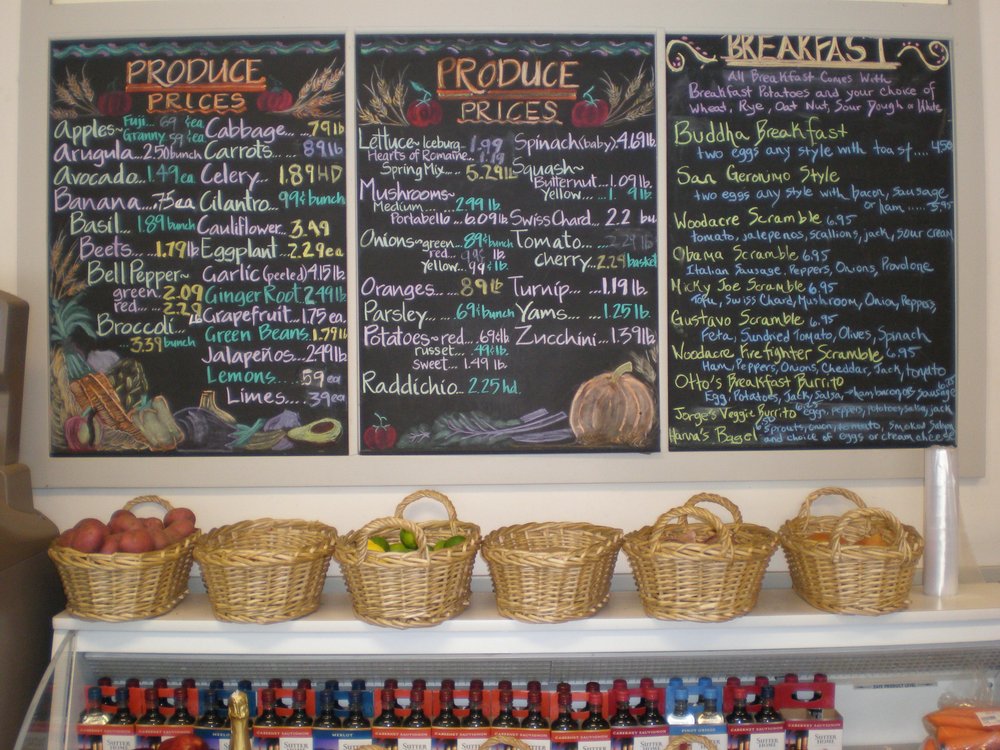 PRODUCE
PRICES
Apples~ Fuji... 69 ¢ea
Granny 59 ¢ea
Arugula... 2.50 bunch
Avocado... 1.49 ea
Banana... .75ea
Basil... 1.89 bunch
Beets... 1.79 lb
Bell Pepper~
green... 2.09
red... 2.29
Broccoli...
3.39 bunch
Cabbage.... .79 lb
Carrots... .89 lb
Celery... 1.89 HD
Cilantro... 99¢ bunch
Cauliflower... 3.49
Eggplant... 2.29 ea
Garlic (peeled) 4.15 lb
Ginger Root 2.49 lb
Grapefruit... 1.75 ea.
Green Beans. 1.79 lb
Jalapeños... 2.49 lb
Lemons..... .59 ea
Limes... .39 ea
PRODUCE
PRICES
Lettuce~ Iceburg... 1.99
Hearts of Romaine... 1.19
Spring Mix.... 5.29 lb
Mushrooms~
Medium... 2.99 lb
Portabello... 6.09 lb
Onions~ green... 89¢ bunch
red... 99¢ lb
Yellow... 99¢ lb.
Oranges... 89 lb
Parsley... 69¢ bunch
Potatoes~ red... 69¢ lb
russet... 49¢ lb.
sweet... 1.49
Raddichio... 2.25 hd.
Spinach (baby) 4.69 lb.
Squash~
Butternut... 1.09 lb.
Yellow...
Swiss Chard... 2.2 bu
Tomato...
cherry... 2.29 basket
Turnip... 1.19 lb
Yams... 1.25 lb.
Zucchini... 1.39 lb.
BREAKFAST
All Breakfast Comes With
Breakfast Potatoes and your choice of
Wheat, Rye, Oat Nut, Sour Dough or White
Buddha Breakfast
two eggs any style with toast.... 4.50
San Geronimo Style
two eggs any style with bacon, sausage
or ham..... 5.95
Woodacre Scramble 6.95
tomato, jalepenos, scallions, jack, sour cream
Obama Scramble 6.95
Italian Sausage, Peppers, Onions, Provolone
Micky Joe Scramble 6.95
Tofu, Swiss Chard, Mushroom, Onion, Peppers,
Gustavo Scramble 6.95
Feta, Sundried Tomato, Olives, Spinach
Woodacre Firefighter Scramble 6.95
Ham, Peppers, Onions, Cheddar, Jack, tomato
Otto's Breakfast Burrito
Egg, Potatoes, Jack, Salsa, ham bacon or sausage
Jorge's Veggie Burrito eggs, peppers, potatoes, salsa, jack
Hanna's Bagel sprouts, onion, tomato, Smoked Salmon
and choice of eggs or cream cheese
SUTTER HOME
CABERNET SAUVIGNON
MERLOT
SAFE PRODUCT LEVEL